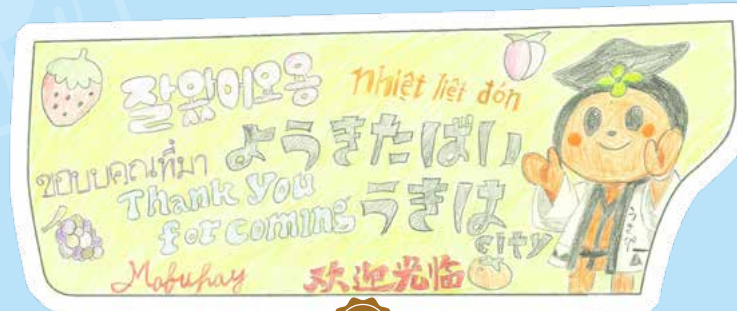 잘왔어요용
nhiệt liệt đón
ขอบบคุณที่มา
ようきたばい
Thank You
for coming
うきは
city
Mabuhay
欢迎光临
うきぴー